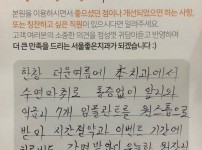 본원을 이용하시면서 좋으셨던 점이나 개선되었으면 하는 사항,
또는 칭찬하고 싶은 직원이 있으시다면 알려주세요.
고객 여러분의 소중한 의견을 정성껏 귀담아듣고 반영하여
더 큰 만족을 드리는 서울좋은치과가 되겠습니다 :)
한창 더운여름에 본 치과에서
수면마취로 통증없이 앞니와
어금니 7개 임플란트를 원스톱으로
받아 시간절약과 이벤트 기간에